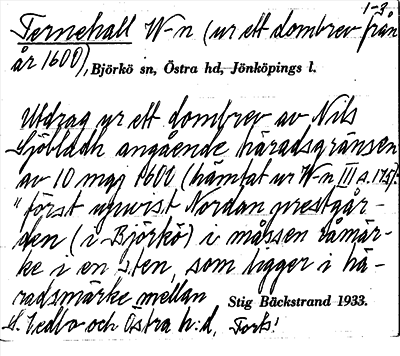 1-3
Ternehall W-n (ur ett dombrev från
år 1600), Björkö sn, Östra hd, Jönköpings l.
Utdrag ur ett dombrev av Nils
Sjöbladh angående häradsgränsen
av 10 maj 1600 (hämtat ur W-n III s. 175).
"först uprist Nordan prestgår-
den (i Björkö) i måssen råmär-
ke i en sten, som ligger i hä-
radsmärke mellan Stig Bäckstrand 1933.
S. Vedbo och Östra h:d, Forts!